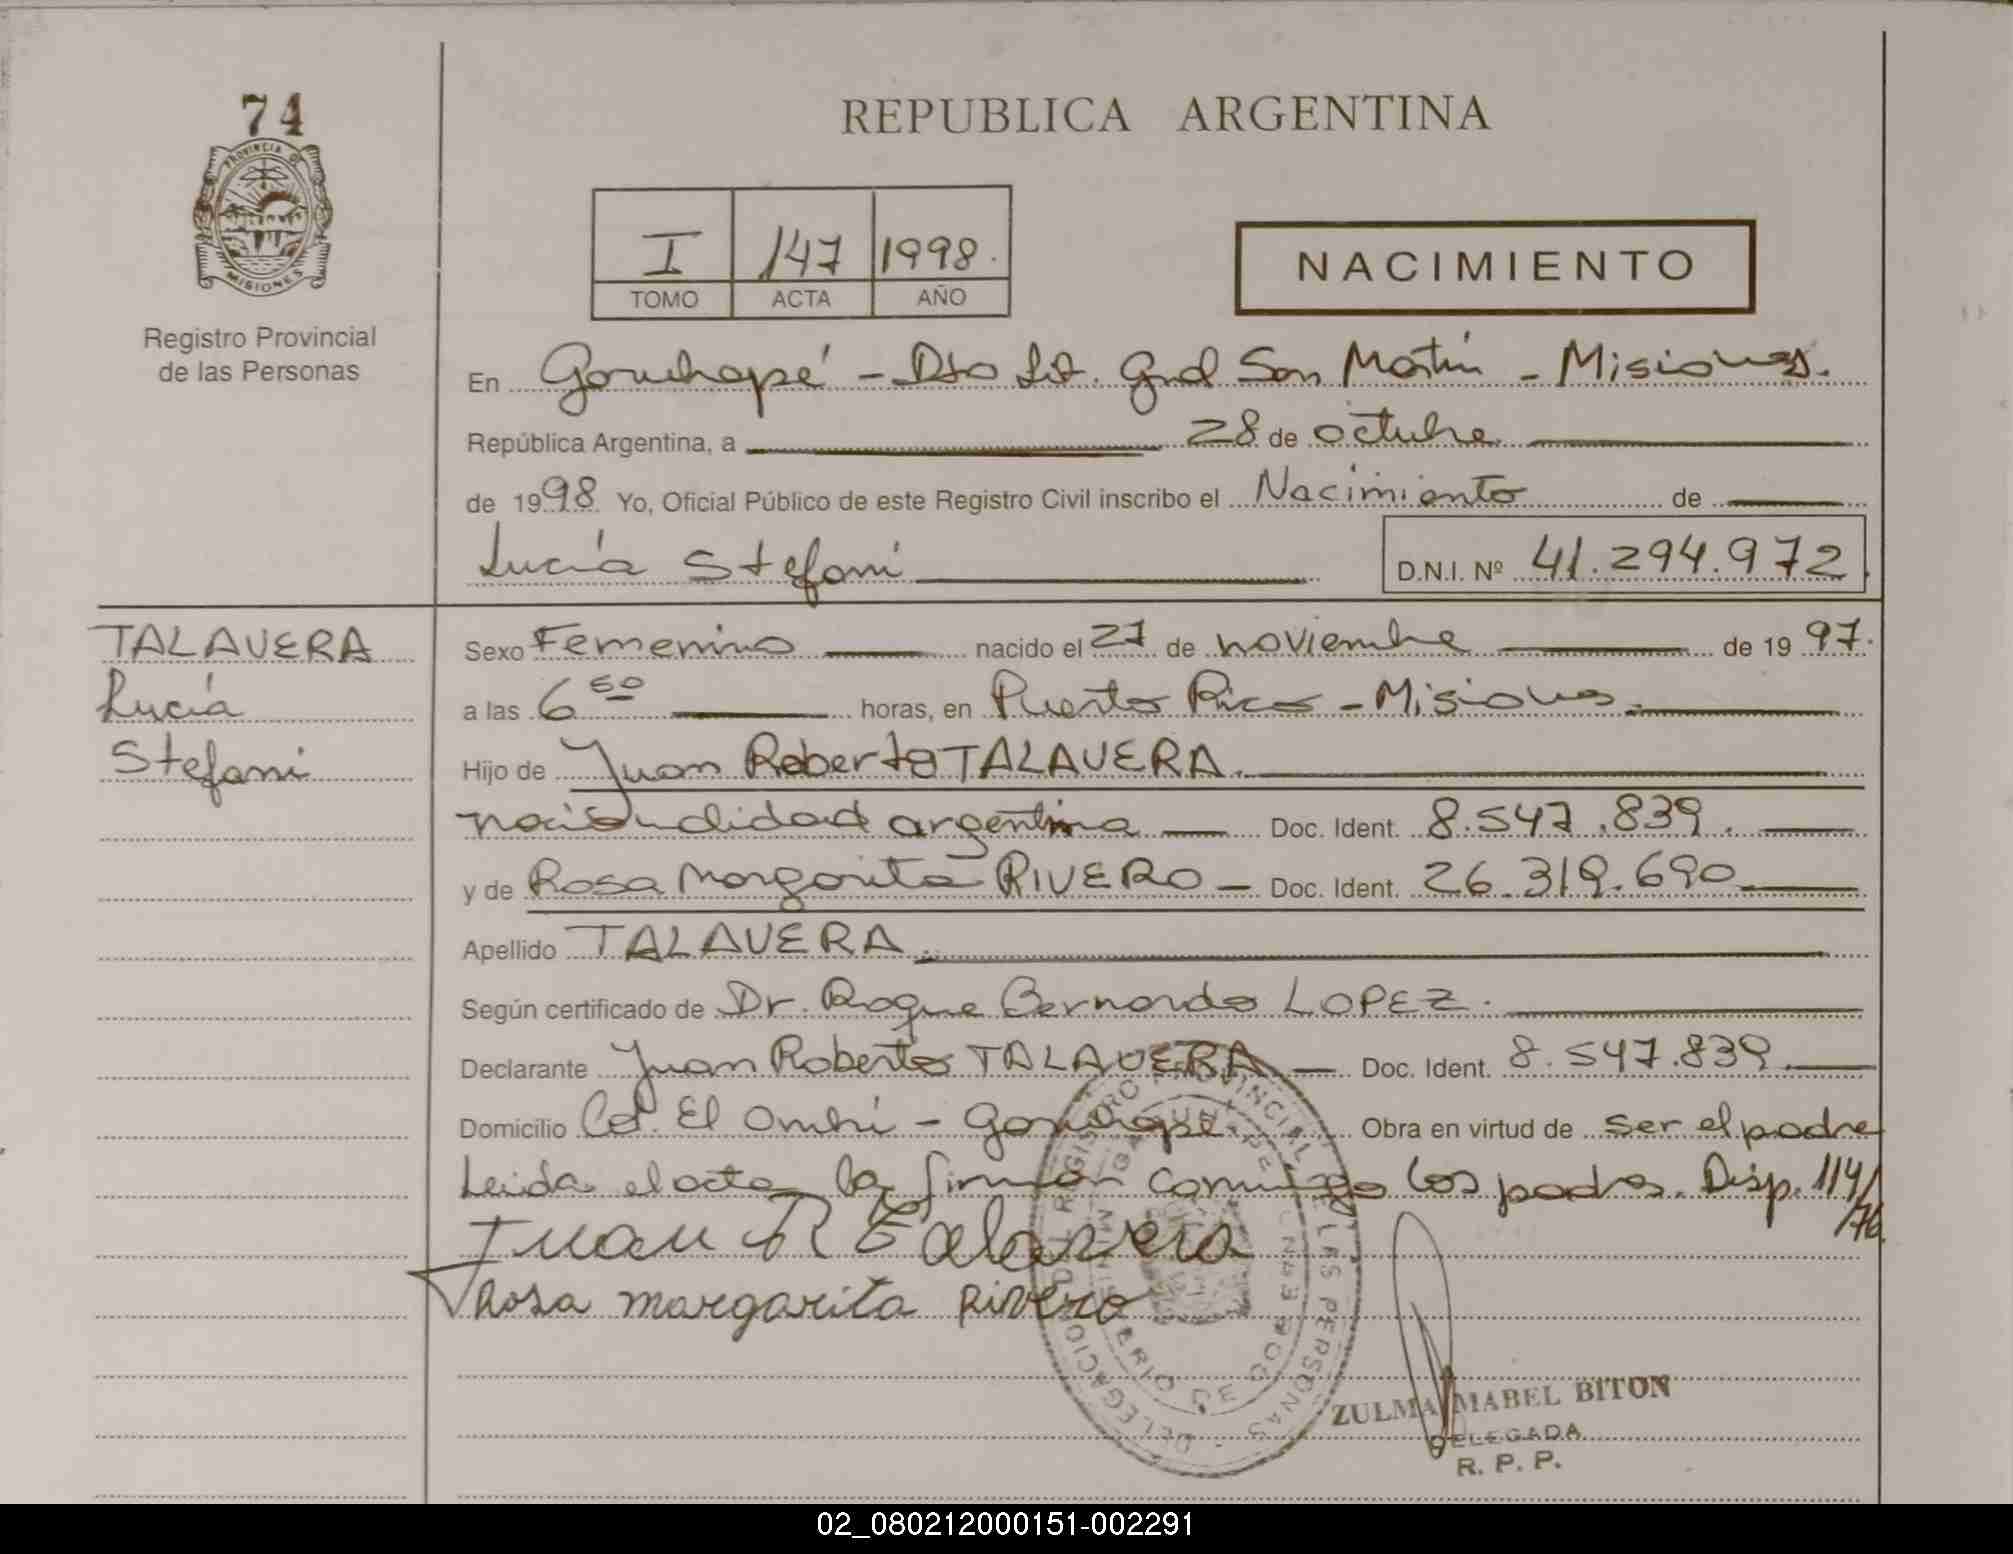 74
REPUBLICA ARGENTINA
PROVINCIA DE
MISIONES
I 147 1998.
TOMO ACTA AÑO
NACIMIENTO
Registro Provincial
de las Personas
En Garuhapé - Dto Lib. Gral San Martín - Misiones.
República Argentina, a 28 de octubre
de 1998 Yo, Oficial Público de este Registro Civil inscribo el Nacimiento de
Lucía Stefani D.N.I. Nº 41.294.972
TALAVERA
Lucía
Stefani
Sexo Femenino nacido el 27 de noviembre de 1997.
a las 6 50 horas, en Puerto Rico - Misiones.
Hijo de Juan Roberto TALAVERA.
nacionalidad argentina Doc. Ident. 8.547.839.
y de Rosa Margarita RIVERO - Doc. Ident. 26.319.690
Apellido TALAVERA.
Según certificado de Dr. Roque Bernardo LOPEZ.
Declarante Juan Roberto TALAVERA Doc. Ident. 8.547.839
Domicilio Col. El Ombú - Garuhapé. Obra en virtud de ser el padre
Leida el acta la firman conmigo los padres. Disp. 114/76
Juan R Talavera
Rosa margarita Rivero
REGISTRO PROVINCIAL DE LAS PERSONAS
MINISTERIO DE GOB
ZULMA MABEL BITON
DELEGADA
R. P. P.
02_080212000151-002291